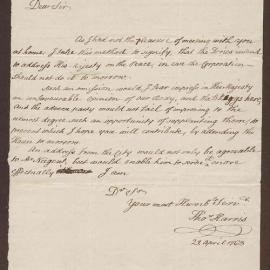 Dear Sir
As I had not the pleasure of meeting with you
at home I take this method to signify, that the
to address His Majesty on the Peace, in case the Corporation
should not do it to morrow.
Such an omission would, I fear impress His Majesty
an unfavourable opinion of our Body, and the
and the adverse party would not fail of improving to the
utmost degree such an opportunity of
prevent which I hope you will contribute, by attending the
House to morrow.
An address from the City would not only be agreeable
to Mr Nugent, but would enable him to more
effectually I am
Dr Sir
Your most Humb Serv
Thos Harris
22 April 1763